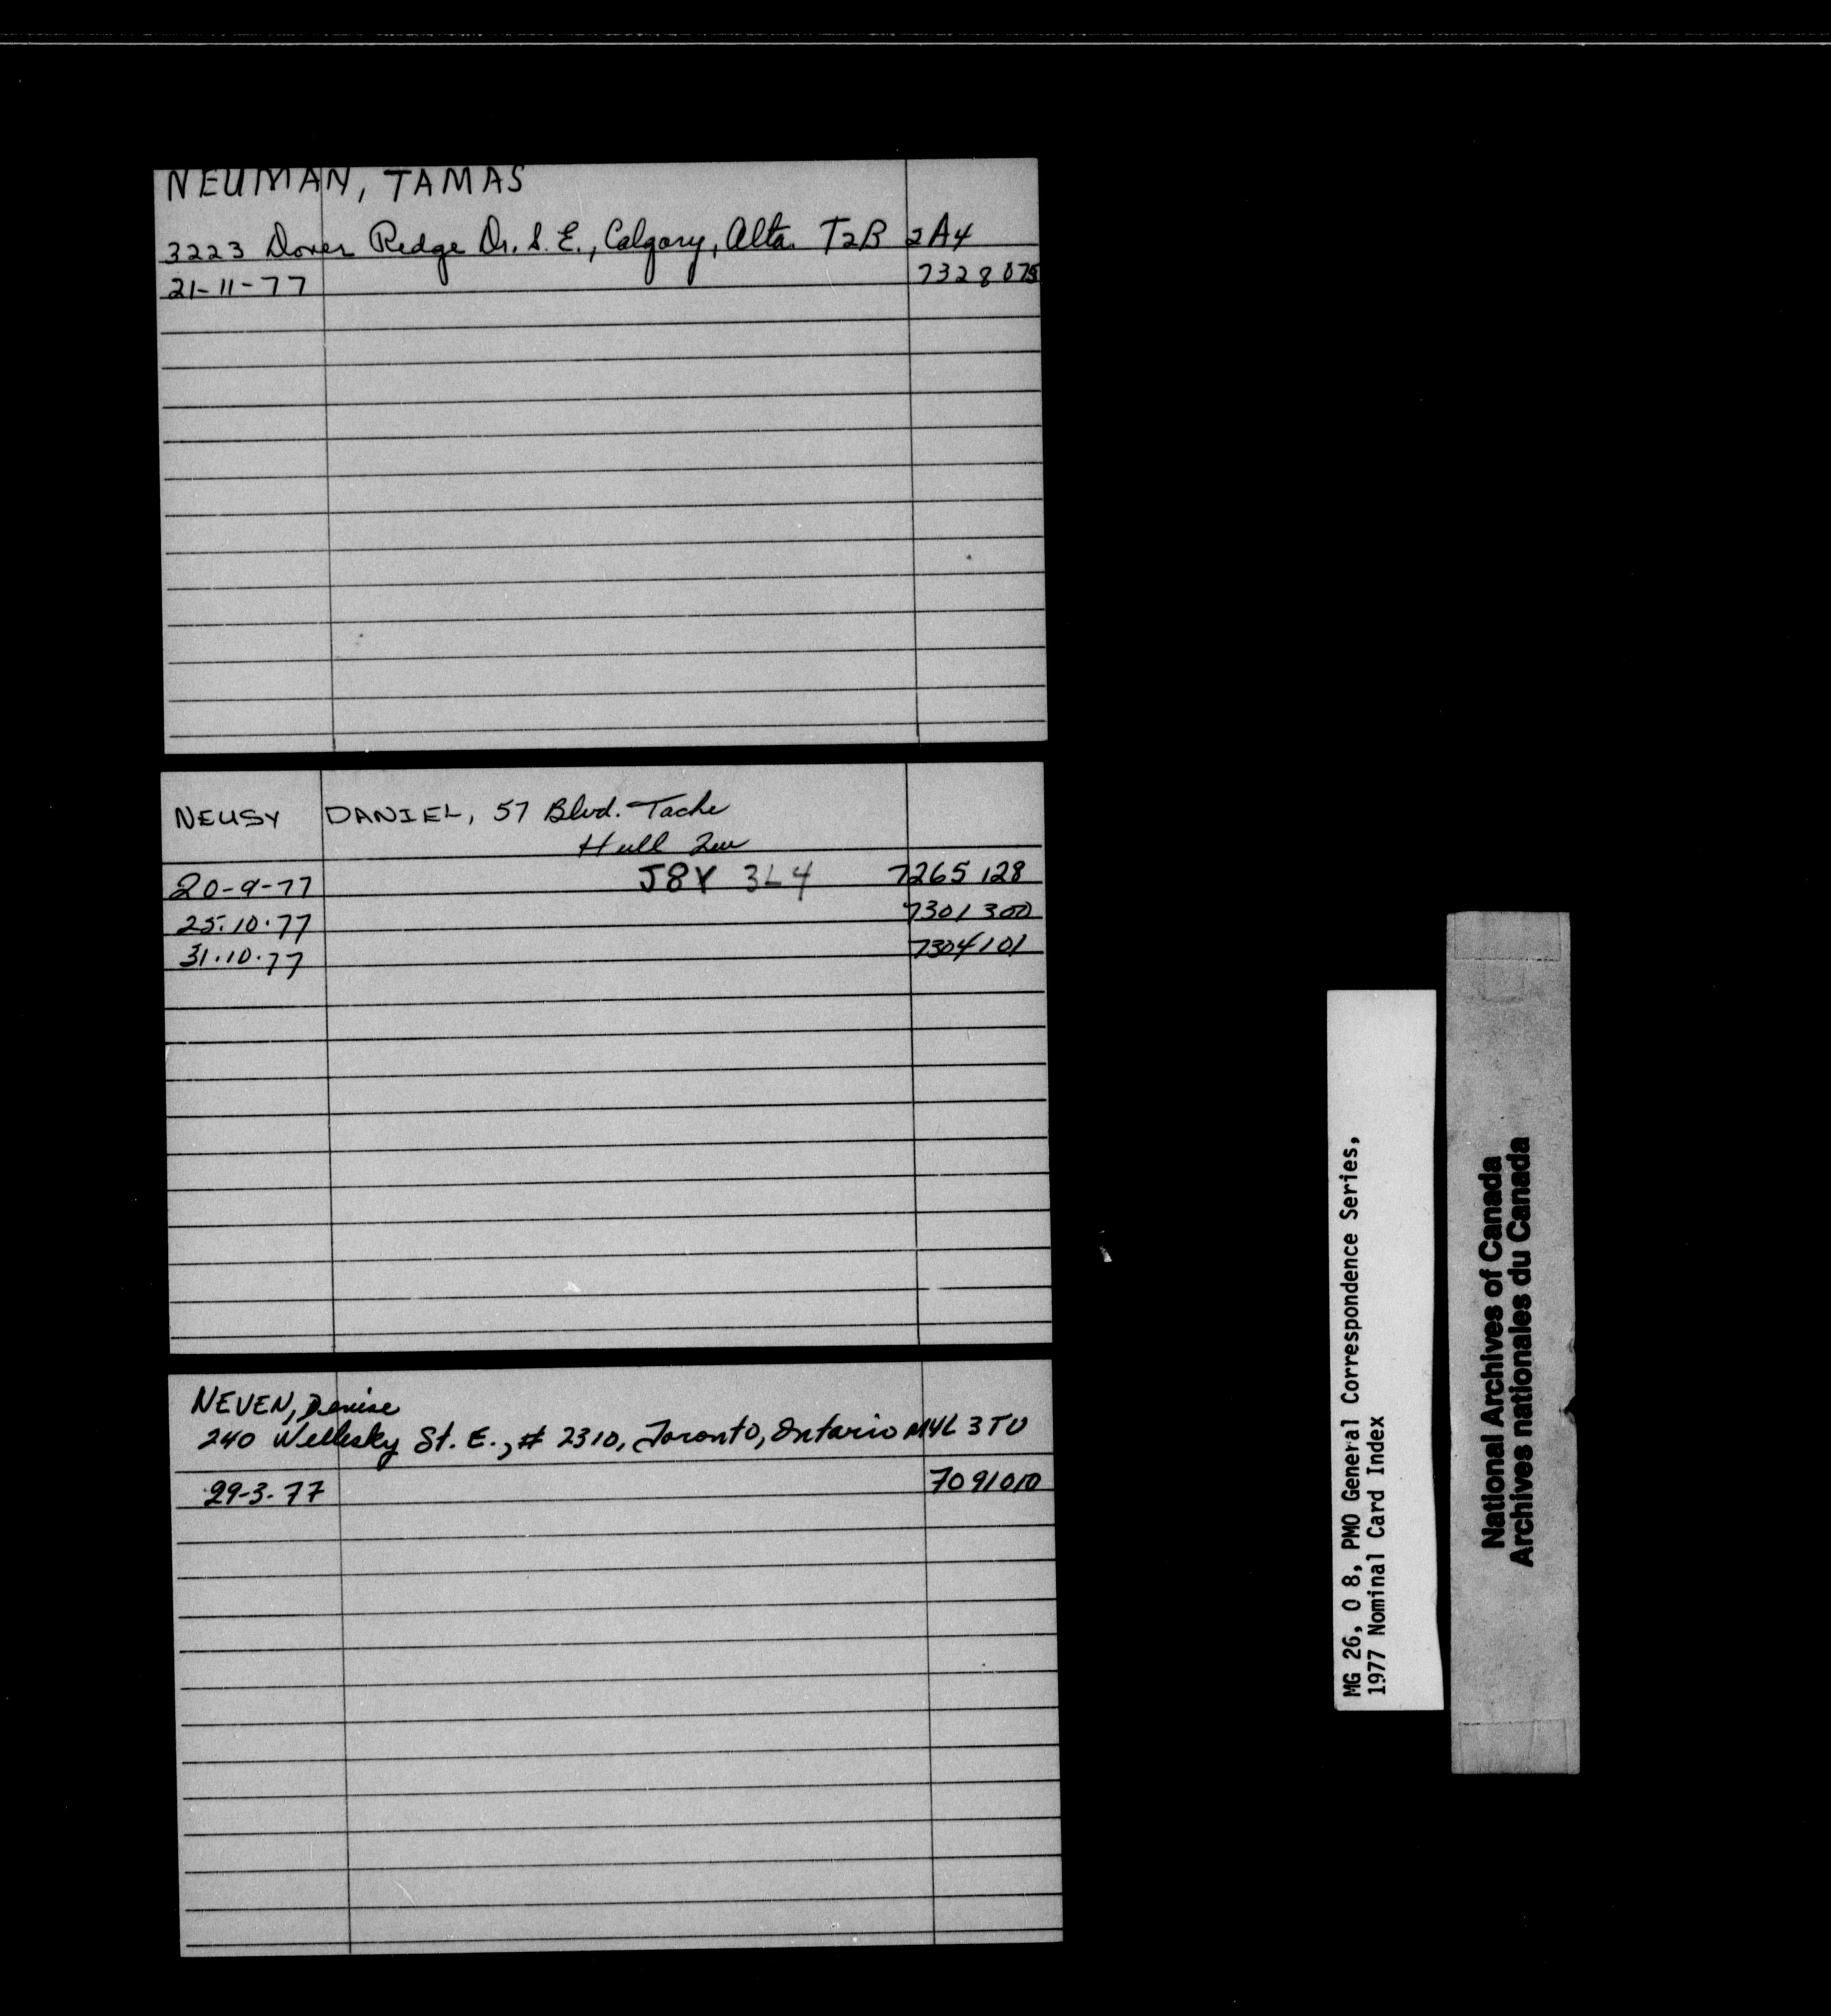 NEUMAN, TAMAS
3223 Dover Redge Dr. S.E., Calgary, Alta. T2B 2A4
21-11-77 7328075
NEUSY DANIEL, 57 Blvd. Tache
Hull Que
J8Y 3L4
20-9-77 7265128
25.10.77 7301300
31.10.77 7304101
NEVEN, Denise
240 Wellesky St. E., # 2310, Toronto, Ontario M4L 3TU
29-3-77 7091010
MG 26, O 8, PMO General Correspondence Series,
1977 Nominal Card Index
National Archives of Canada
Archives nationales du Canada